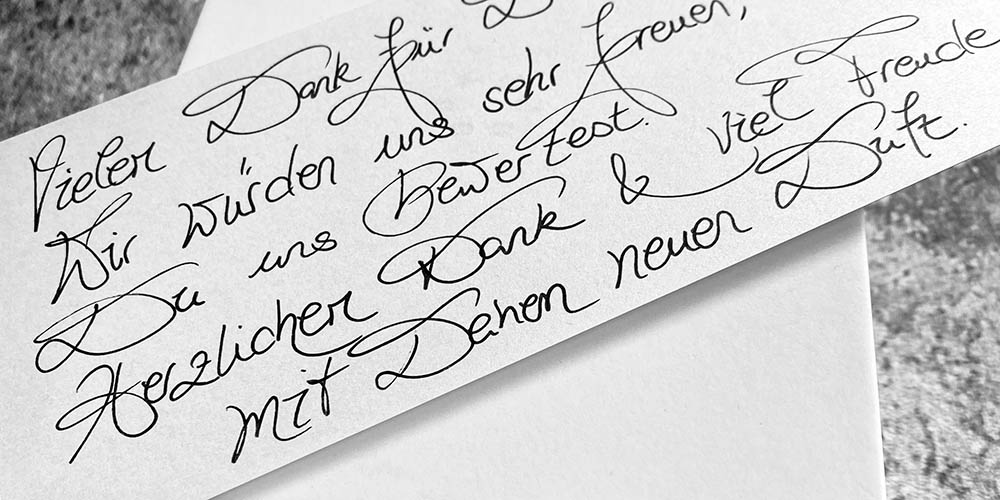 Vielen Dank für
Wir würden uns sehr freuen,
Du uns bewertest.
Herzlichen Dank & viel Freude
mit Deinem neuen Duft.